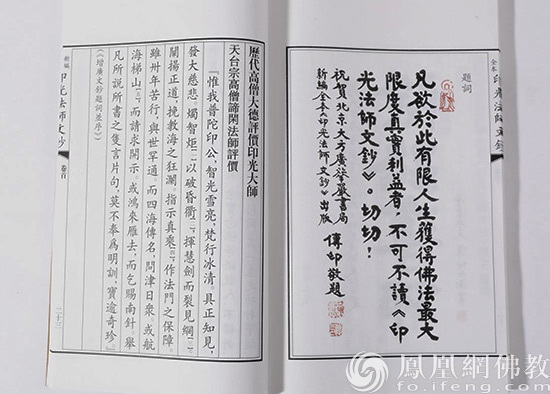 全本 印光法師文鈔
題詞
凡欲於此有限人生獲得佛法最大
限度真實利益者，不可不讀《印
光法師文鈔》。切切！
祝賀北京大方廣華嚴書局
新編全本《印光法師文鈔》出版
傳印敬題
歷代高僧大德評價印光大師
天台宗高僧諦閑法師評價
「惟我普陀印公，智光雪亮，梵行冰清。具正知見，
發大慈悲，燭智炬以破昏衢，揮慧劍而裂見網。
闡揚正道，挽教海之狂瀾。指示真乘，作法門之保障。
雖卅年苦行，與世罕通，而四海傳名，問津日衆，或航
海梯山，而請求開示，或鴻來雁去，而乞賜南針。舉
凡所說所書之隻言片句，莫不奉為明訓，寶逾奇珍」。
（《增廣文鈔題詞並序》）
新編 印光法師文鈔 卷首 二十三
鳳凰網佛教
fo.ifeng.com